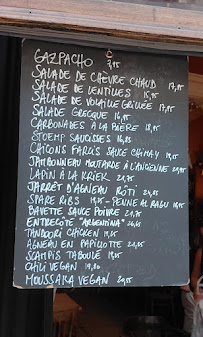 GAZPACHO 7,95
SALADE DE CHÈVRE CHAUD 17,95
SALADE DE LENTILLES 15,95
SALADE DE VOLAILLE GRILLÉE 17,95
SALADE GRECQUE 16,95
CARBONADES À LA BIÈRE 18,95
STOEMP SAUCISSES 16,80
CHICONS FARCIS SAUCE CHIMAY
JAMBONNEAU MOUTARDE À L'ANCIENNE
LAPIN À LA KRIEK 21,95
JARRET D'AGNEAU RÔTI 24,95
SPARE RIBS 19,95 - PENNE AL RAGU 18,95
BAVETTE SAUCE POIVRE 21,95
ENTRECÔTE "ARGENTINA" 26,95
TANDOORI CHICKEN 19,95
AGNEAU EN PAPILLOTTE 24,95
SCAMPIS TABOULÉ 19,95
CHILI VEGAN 19,80
MOUSSAKA VEGAN 20,95